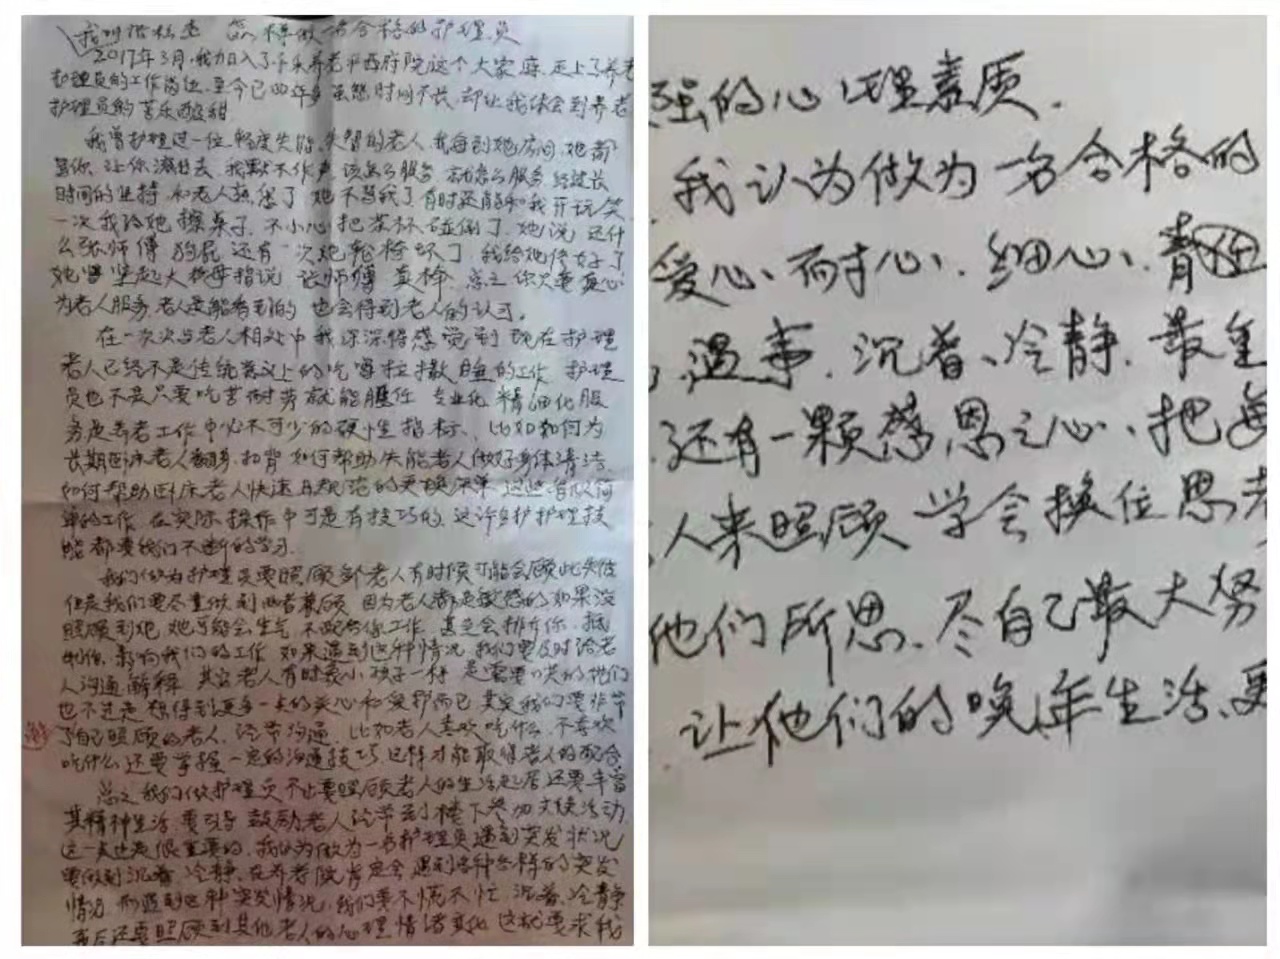 怎样做一名合格的护理员
2017年3月,我加入了千禾养老平西府院这个大家庭,走上了养老
护理员的工作岗位,至今已四年多虽然时间不长,却让我体会到养老
护理员的苦乐酸甜
我曾护理过一位,轻度失能,失智的老人,我每到她房间,她都
骂你,让你滚出去,我默不作声,该怎么服务,就怎么服务,经过长
时间的坚持,和老人熟悉了,她不骂我了有时还能和我开玩笑
一次我给她擦桌子,不小心把茶杯碰倒了,她说,还什
么张师傅,狗屁,还有一次她轮椅坏了,我给她修好了
她竖起大拇指说,张师傅真棒,总之,你只要真心
为老人服务,老人是能看到的,也会得到老人的认可。
在一次次与老人相处中,我深深得感觉到,现在护理
老人已经不是传统意义上的吃喝拉撒睡的工作,护理
员也不是只要吃苦耐劳就能胜任,专业化,精细化服
务是养老工作中必不可少的硬性指标、比如如何为
长期卧床老人翻身,扣背,如何帮助失能老人做好身体清洁,
如何帮助卧床老人快速且规范的更换床单,这些看似简
单的工作,在实际操作中可是有技巧的,这许多护护理技
能都要我们不断的学习.
我们做为护理员要照顾多个老人有时候可能会顾此失彼
但是我们要尽量做到两者兼顾,因为老人都是敏感的如果没
照顾到她,她可能会生气,不配合你工作,甚至会排斥你,抵
制你,影响我们的工作,如果遇到这种情况,我们要及时给老
人沟通解释,其实老人有时候小孩子一样,是需要哄的他们
也不过是想得到更多一点的关心和爱护而已,其实我们要非常
了自己照顾的老人,经常沟通,比如老人喜欢吃什么,不喜欢
吃什么,还要掌握一定的沟通技巧,这样才能取得老人的配合
总之,我们做护理员不止要照顾老人的生活起居还要丰富
其精神生活,要引导鼓励老人经常到楼下参加文娱活动,
这一点也是很重要的,我认为做为一名护理员遇到突发状况
要做到沉着,冷静,在养老院肯定会遇到各种各样的突发
情况,而遇到这种突发情况,我们要不慌不忙,沉着,冷静
事后还要照顾到其他老人的心理情绪变化,这就要求我
强的心理素质.
我认为做为一名合格的
爱心、耐心、细心、责任
遇事,沉着、冷静,最重
还有一颗感恩之心、把每
人来照顾,学会换位思考
他们所思、尽自己最大努
让他们的晚年生活、更